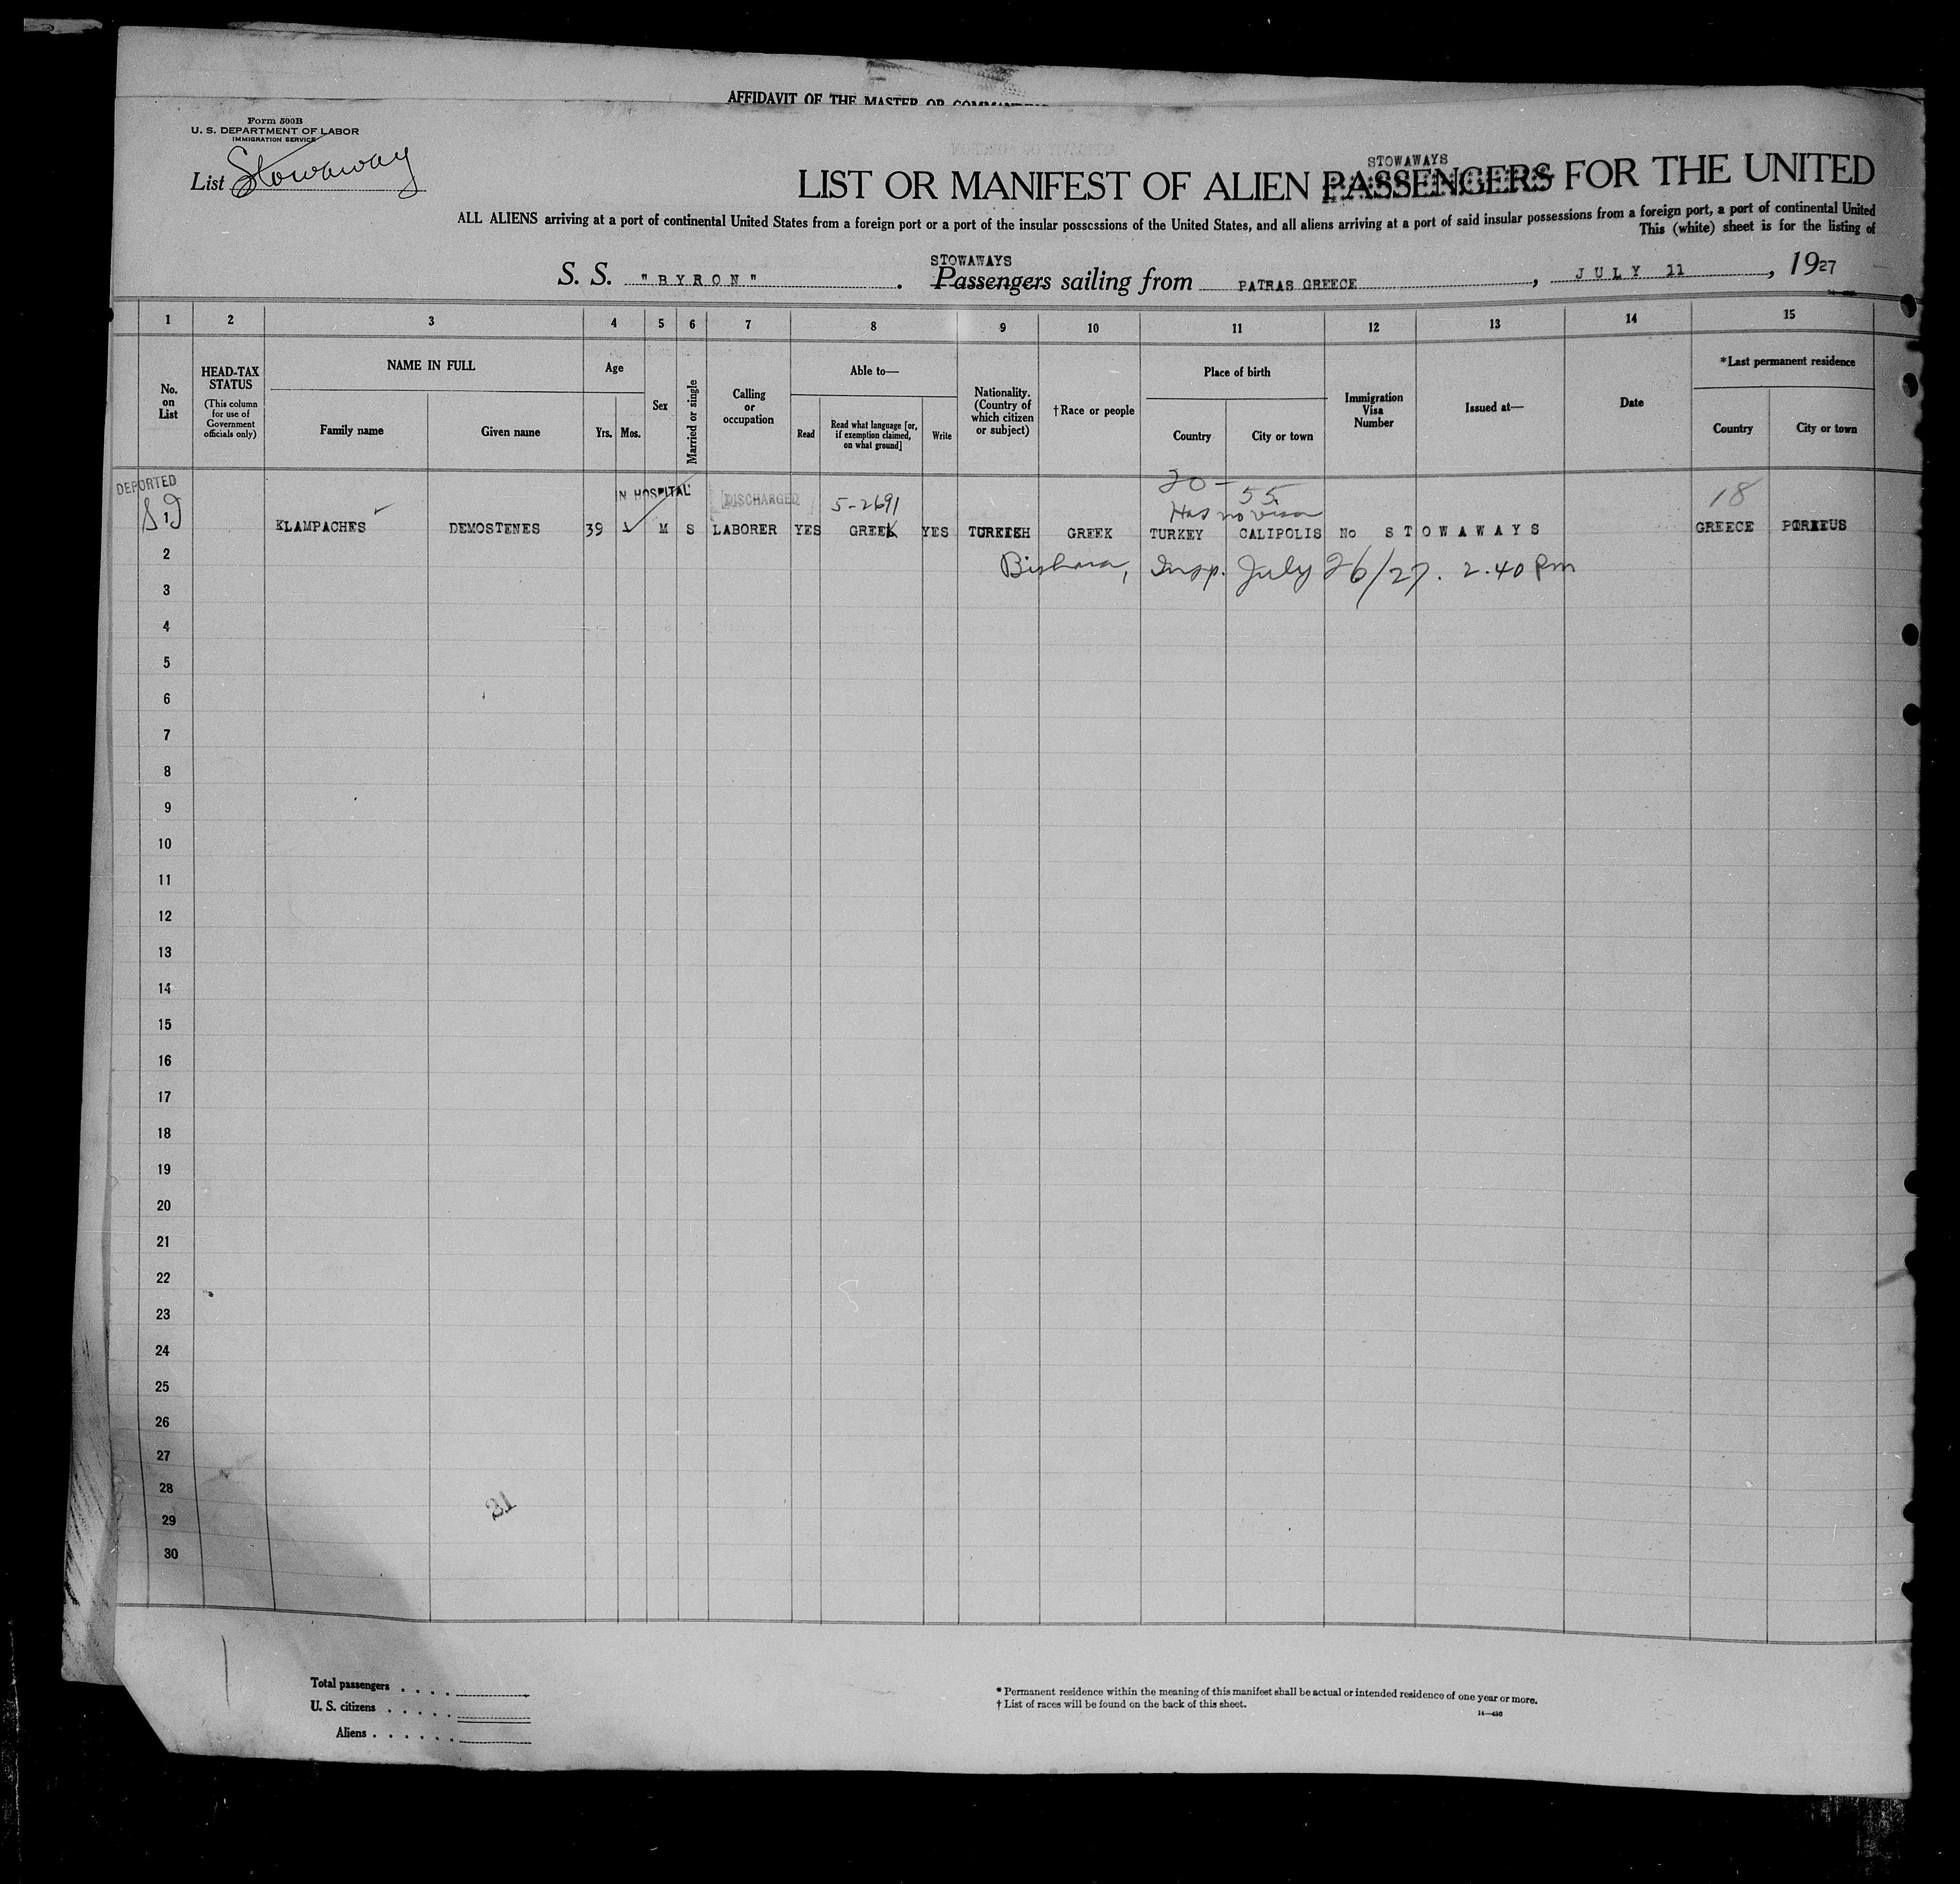 AFFIDAVIT OF THE MASTER OR
Form 500B
U. S. DEPARTMENT OF LABOR
IMMIGRATION SERVICE
List Stowaway
STOWAWAYS
LIST OR MANIFEST OF ALIEN PASSENGERS FOR THE UNITED
ALL ALIENS arriving at a port of continental United States from a foreign port or a port of the insular possessions of the United States, and all aliens arriving at a port of said insular possessions from a foreign port, a port of continental United
This (white) sheet is for the listing of
STOWAWAYS
S. S. "BYRON" . Passengers sailing from PATRAS GREECE , JULY 11 , 1927
1 2 3 4 5 6 7 8 9 10 11 12 13 14 15
No. on List
HEAD-TAX STATUS
(This column for use of Government officials only)
NAME IN FULL
Family name
Given name
Age
Yrs.
Mos.
Sex
Married or single
Calling or occupation
Able to—
Read
Read what language [or, if exemption claimed, on what ground]
Write
Nationality. (Country of which citizen or subject)
†Race or people
Place of birth
Country
City or town
Immigration Visa Number
Issued at—
Date
*Last permanent residence
Country
City or town
DEPORTED
IN HOSPITAL
DISCHARGED
5-2691
20-55
Has no visa
18
1 KLAMPACHES DEMOSTENES 39 M S LABORER YES GREEK YES TURKISH GREEK TURKEY CALIPOLIS No STOWAWAYS GREECE
2 Bishara, Insp. July 26/27. 2.40 Pm
3
4
5
6
7
8
9
10
11
12
13
14
15
16
17
18
19
20
21
22
23
24
25
26
27
28
29
30
31
Total passengers . . . .
U. S. citizens . . . . .
Aliens . . . . . .
* Permanent residence within the meaning of this manifest shall be actual or intended residence of one year or more.
† List of races will be found on the back of this sheet.
14—430